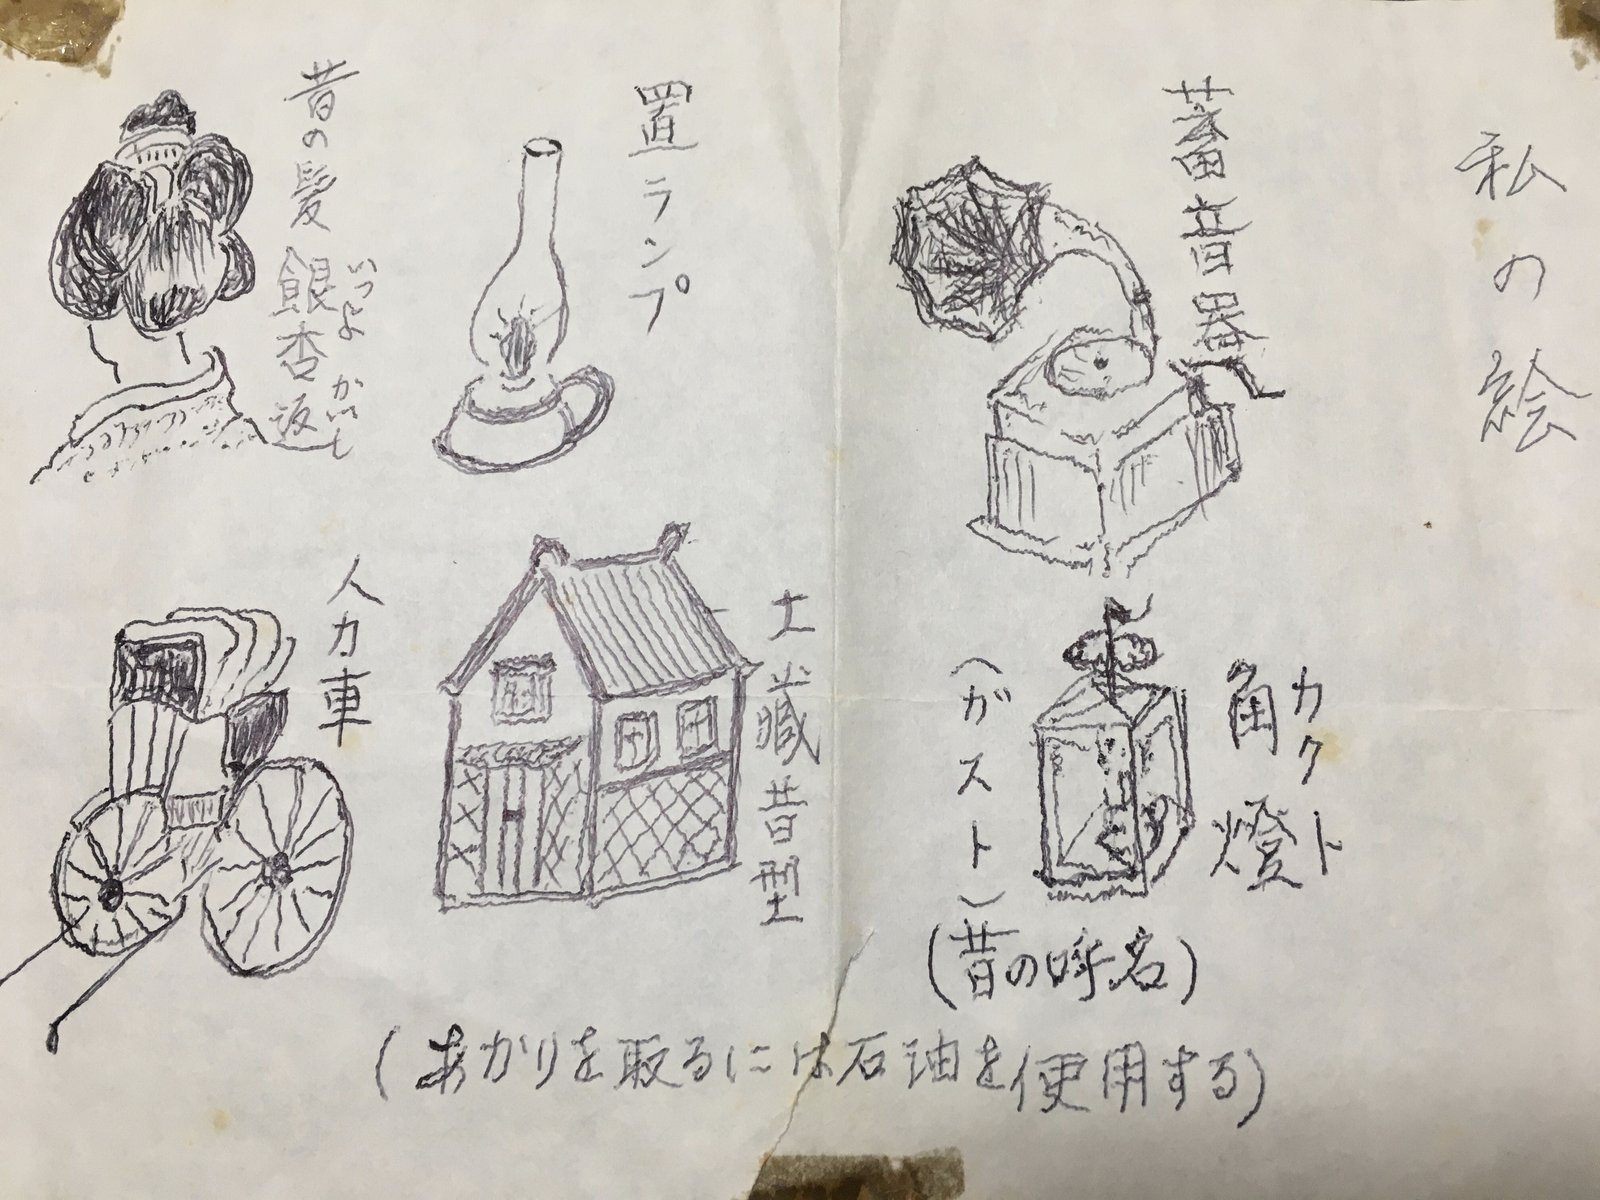 私の絵
蓄音器
カクト
角燈
(ガスト)
(昔の呼名)
置ランプ
土蔵昔型
昔の髪
いつよ かいし
銀杏返し
人力車
(あかりを取るには石油を使用する)